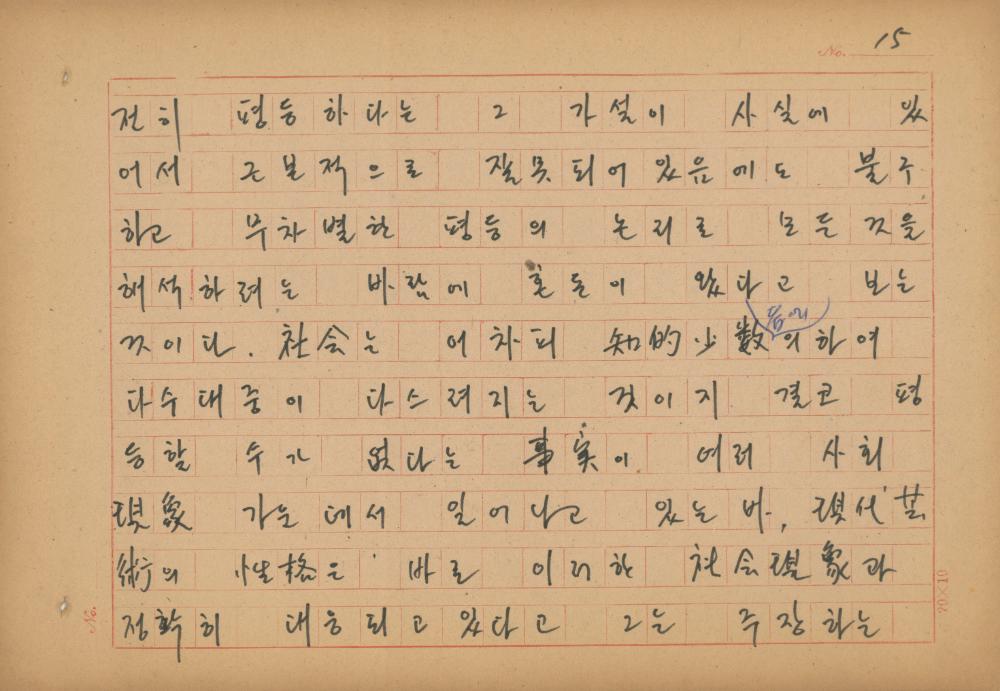 No. 15
전히 평등하다는 그 가설이 사실에 있
어서 근본적으로 잘못되어 있음에도 불구
하고 무차별한 평등의 논리로 모든 것을
해석하려는 바람에 혼돈이 왔다고 보는
것이다. 社会는 어차피 知的少数의하여
다수대중이 다스려지는 것이지 결코 평
등할 수가 없다는 事実이 여러 사회
現象 가운데서 일어나고 있는 바, 現代芸
術의 性格은 바로 이러한 社会現象과
정확히 대응되고 있다고 그는 주장하는
No.
20×10